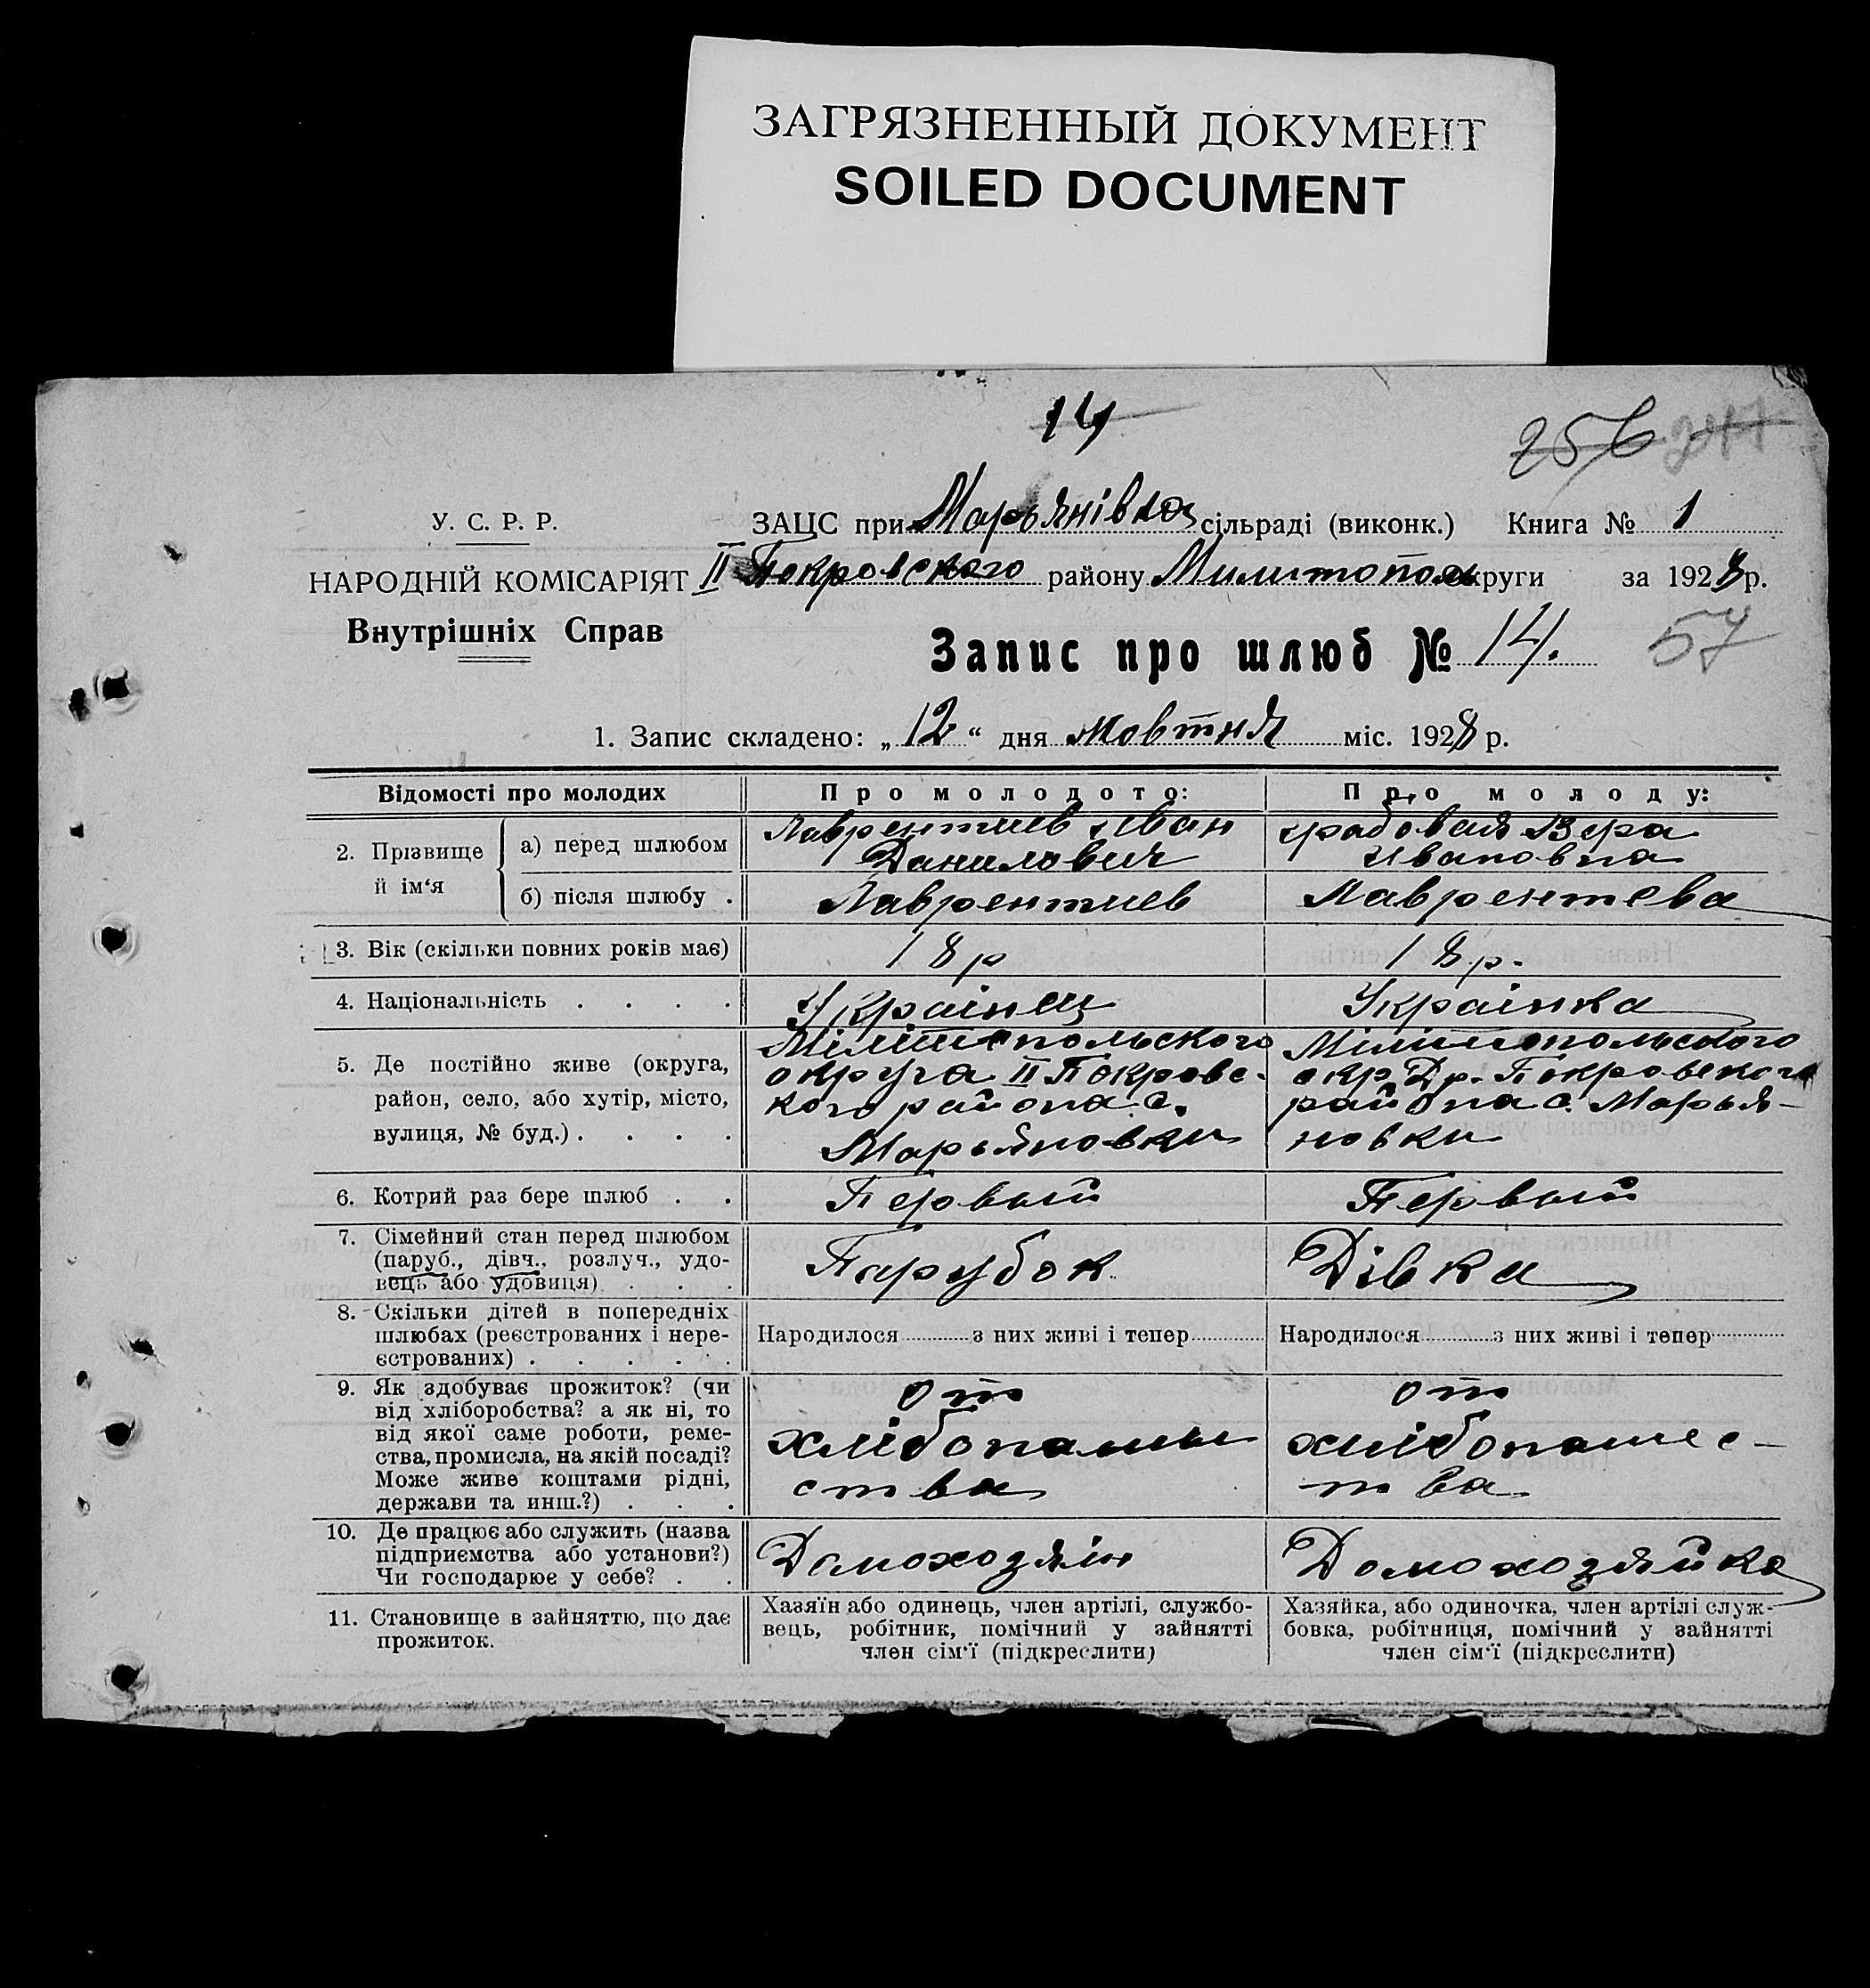 ЗАГРЯЗНЕННЫЙ ДОКУМЕНТ
SOILED DOCUMENT
14
256
У. С. Р. Р.
ЗАЦС при Марьянівка сільраді (виконк.) Книга № 1
НАРОДНІЙ КОМІСАРІЯТ II Покровского району Милитополь округи за 1928 р.
Внутрішніх Справ
Запис про шлюб № 14. 57
1. Запис складено: „12“ дня жовтня міс. 1928 р.
Відомості про молодих
Про молодого:
Про молоду:
2. Прізвище й ім‘я
а) перед шлюбом
Лаврентиев Иван
Данилович
Вера
Ивановна
б) після шлюбу .
Лаврентиев
Лаврентева
3. Вік (скільки повних років має)
18 р
18 р.
4. Національність . . . .
Украінец
Украінка
5. Де постійно живе (округа,
район, село, або хутір, місто,
вулиця, № буд.) . . . .
Мілітопольского
округа II Покровс-
кого района с.
Марьяновки
Мілітопольского
окр Покровского
района с. Марья-
новки
6. Котрий раз бере шлюб . .
Первый
Первый
7. Сімейний стан перед шлюбом
(паруб., дівч., розлуч., удо-
вець або удовиця) . . .
Парубок
Дівка
8. Скільки дітей в попередніх
шлюбах (реєстрованих і нере-
єстрованих) . . . . .
Народилося з них живі і тепер
Народилося з них живі і тепер
9. Як здобуває прожиток? (чи
від хліборобства? а як ні, то
від якої саме роботи, реме-
ства, промисла, на якій посаді?
Може живе коштами рідні,
держави та инш.?) . . .
от
хлібопашы
ства
от
хлібопашес-
тва
10. Де працює або служить (назва
підприємства або установи?)
Чи господарює у себе? . .
Домохозяін
Домохозяйка
11. Становище в зайняттю, що дає
прожиток.
Хазяїн або одинець, член артілі, службо-
вець, робітник, помічний у зайнятті
член сім‘ї (підкреслити)
Хазяйка, або одиночка, член артілі служ-
бовка, робітниця, помічний у зайнятті
член сім‘ї (підкреслити)